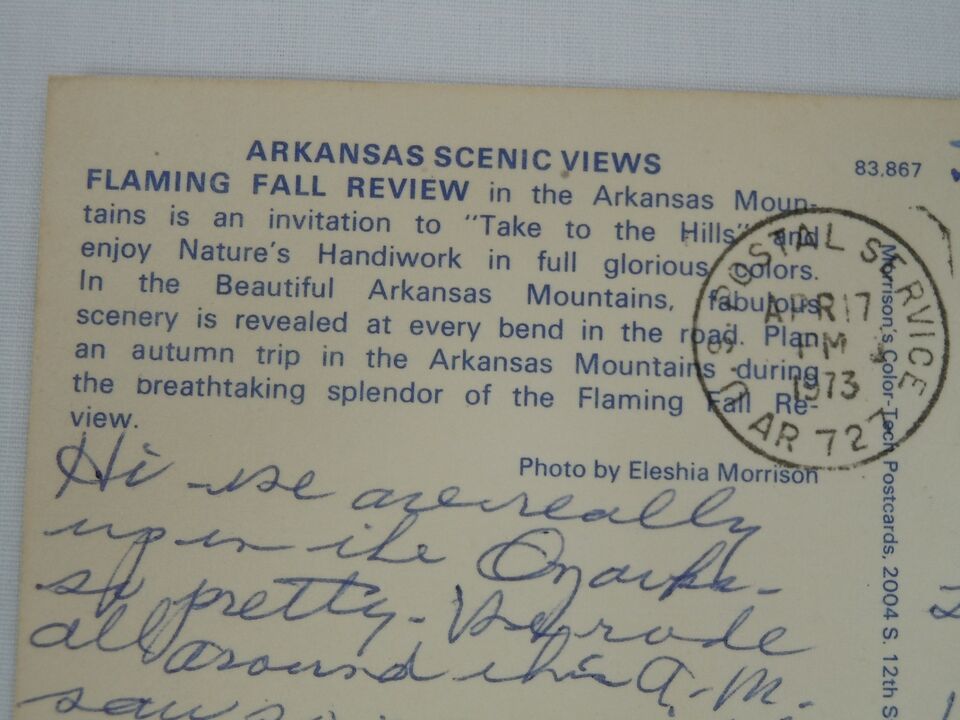 ARKANSAS SCENIC VIEWS
83,867
FLAMING FALL REVIEW in the Arkansas Moun-
tains is an invitation to "Take to the Hills" and
enjoy Nature's Handiwork in full glorious colors.
In the Beautiful Arkansas Mountains, fabulous
scenery is revealed at every bend in the road. Plan
an autumn trip in the Arkansas Mountains during
the breathtaking splendor of the Flaming Fall Re-
view.
Photo by Eleshia Morrison
U.S. POSTAL SERVICE
APR 17
PM
1973
AR 727
Morrison's Color-Tech Postcards, 2004 S. 12th S
Hi - we are really
up in the Ozarks -
so pretty. We rode
all around this A.M.
saw